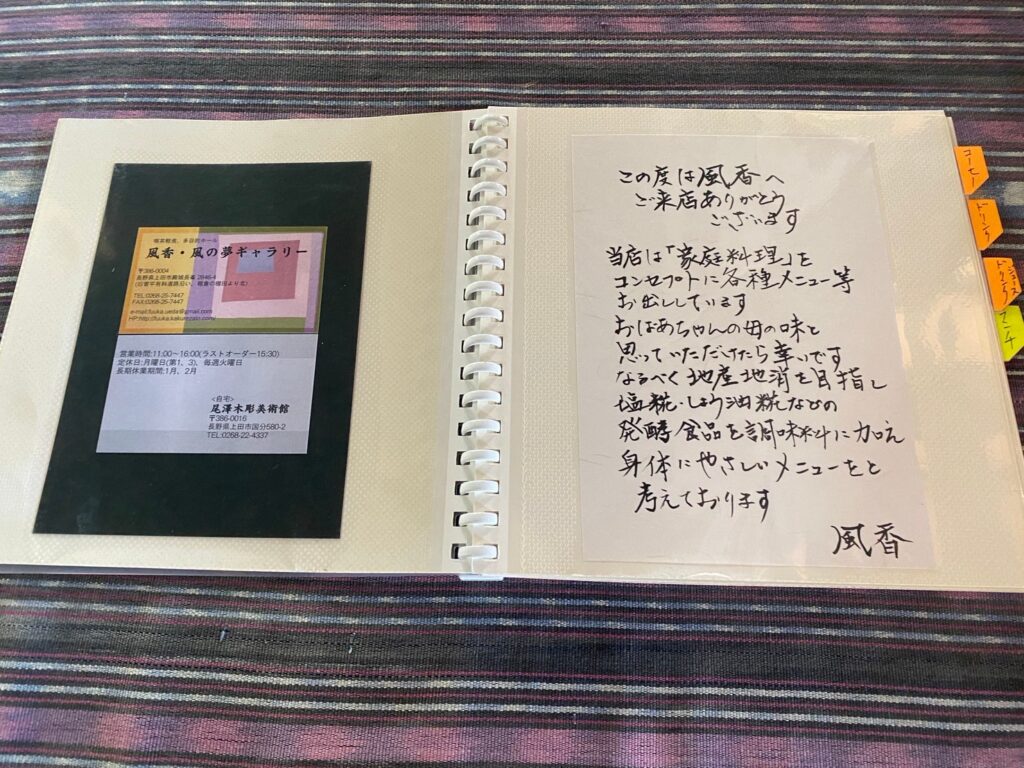 喫茶軽食、多目的ホール
風香・風の夢ギャラリー
〒386-0004
長野県上田市殿城長峯 2846-4
(旧菅平有料道路沿い、稲倉の棚田より北)
TEL:0268-25-7447
FAX:0268-25-7447
e-mail:fuuka.ueda@gmail.com
HP:http://fuuka.kakurezato.com/
営業時間:11:00～16:00(ラストオーダー15:30)
定休日:月曜日(第1、3)、毎週火曜日
長期休業期間:1月、2月
<自宅>
尾澤木彫美術館
〒386-0016
長野県上田市国分580-2
TEL:0268-22-4337
この度は風香へ
ご来店ありがとう
ございます
当店は「家庭料理」を
コンセプトに各種メニュー等
お出ししています
おばあちゃんの母の味と
思っていただけたら幸いです
なるべく地産地消を目指し
塩糀・しょう油糀などの
発酵食品を調味料に加え
身体にやさしいメニューをと
考えております
風香
コーヒー
ドリンク
ジュース
ドリンク
ランチ